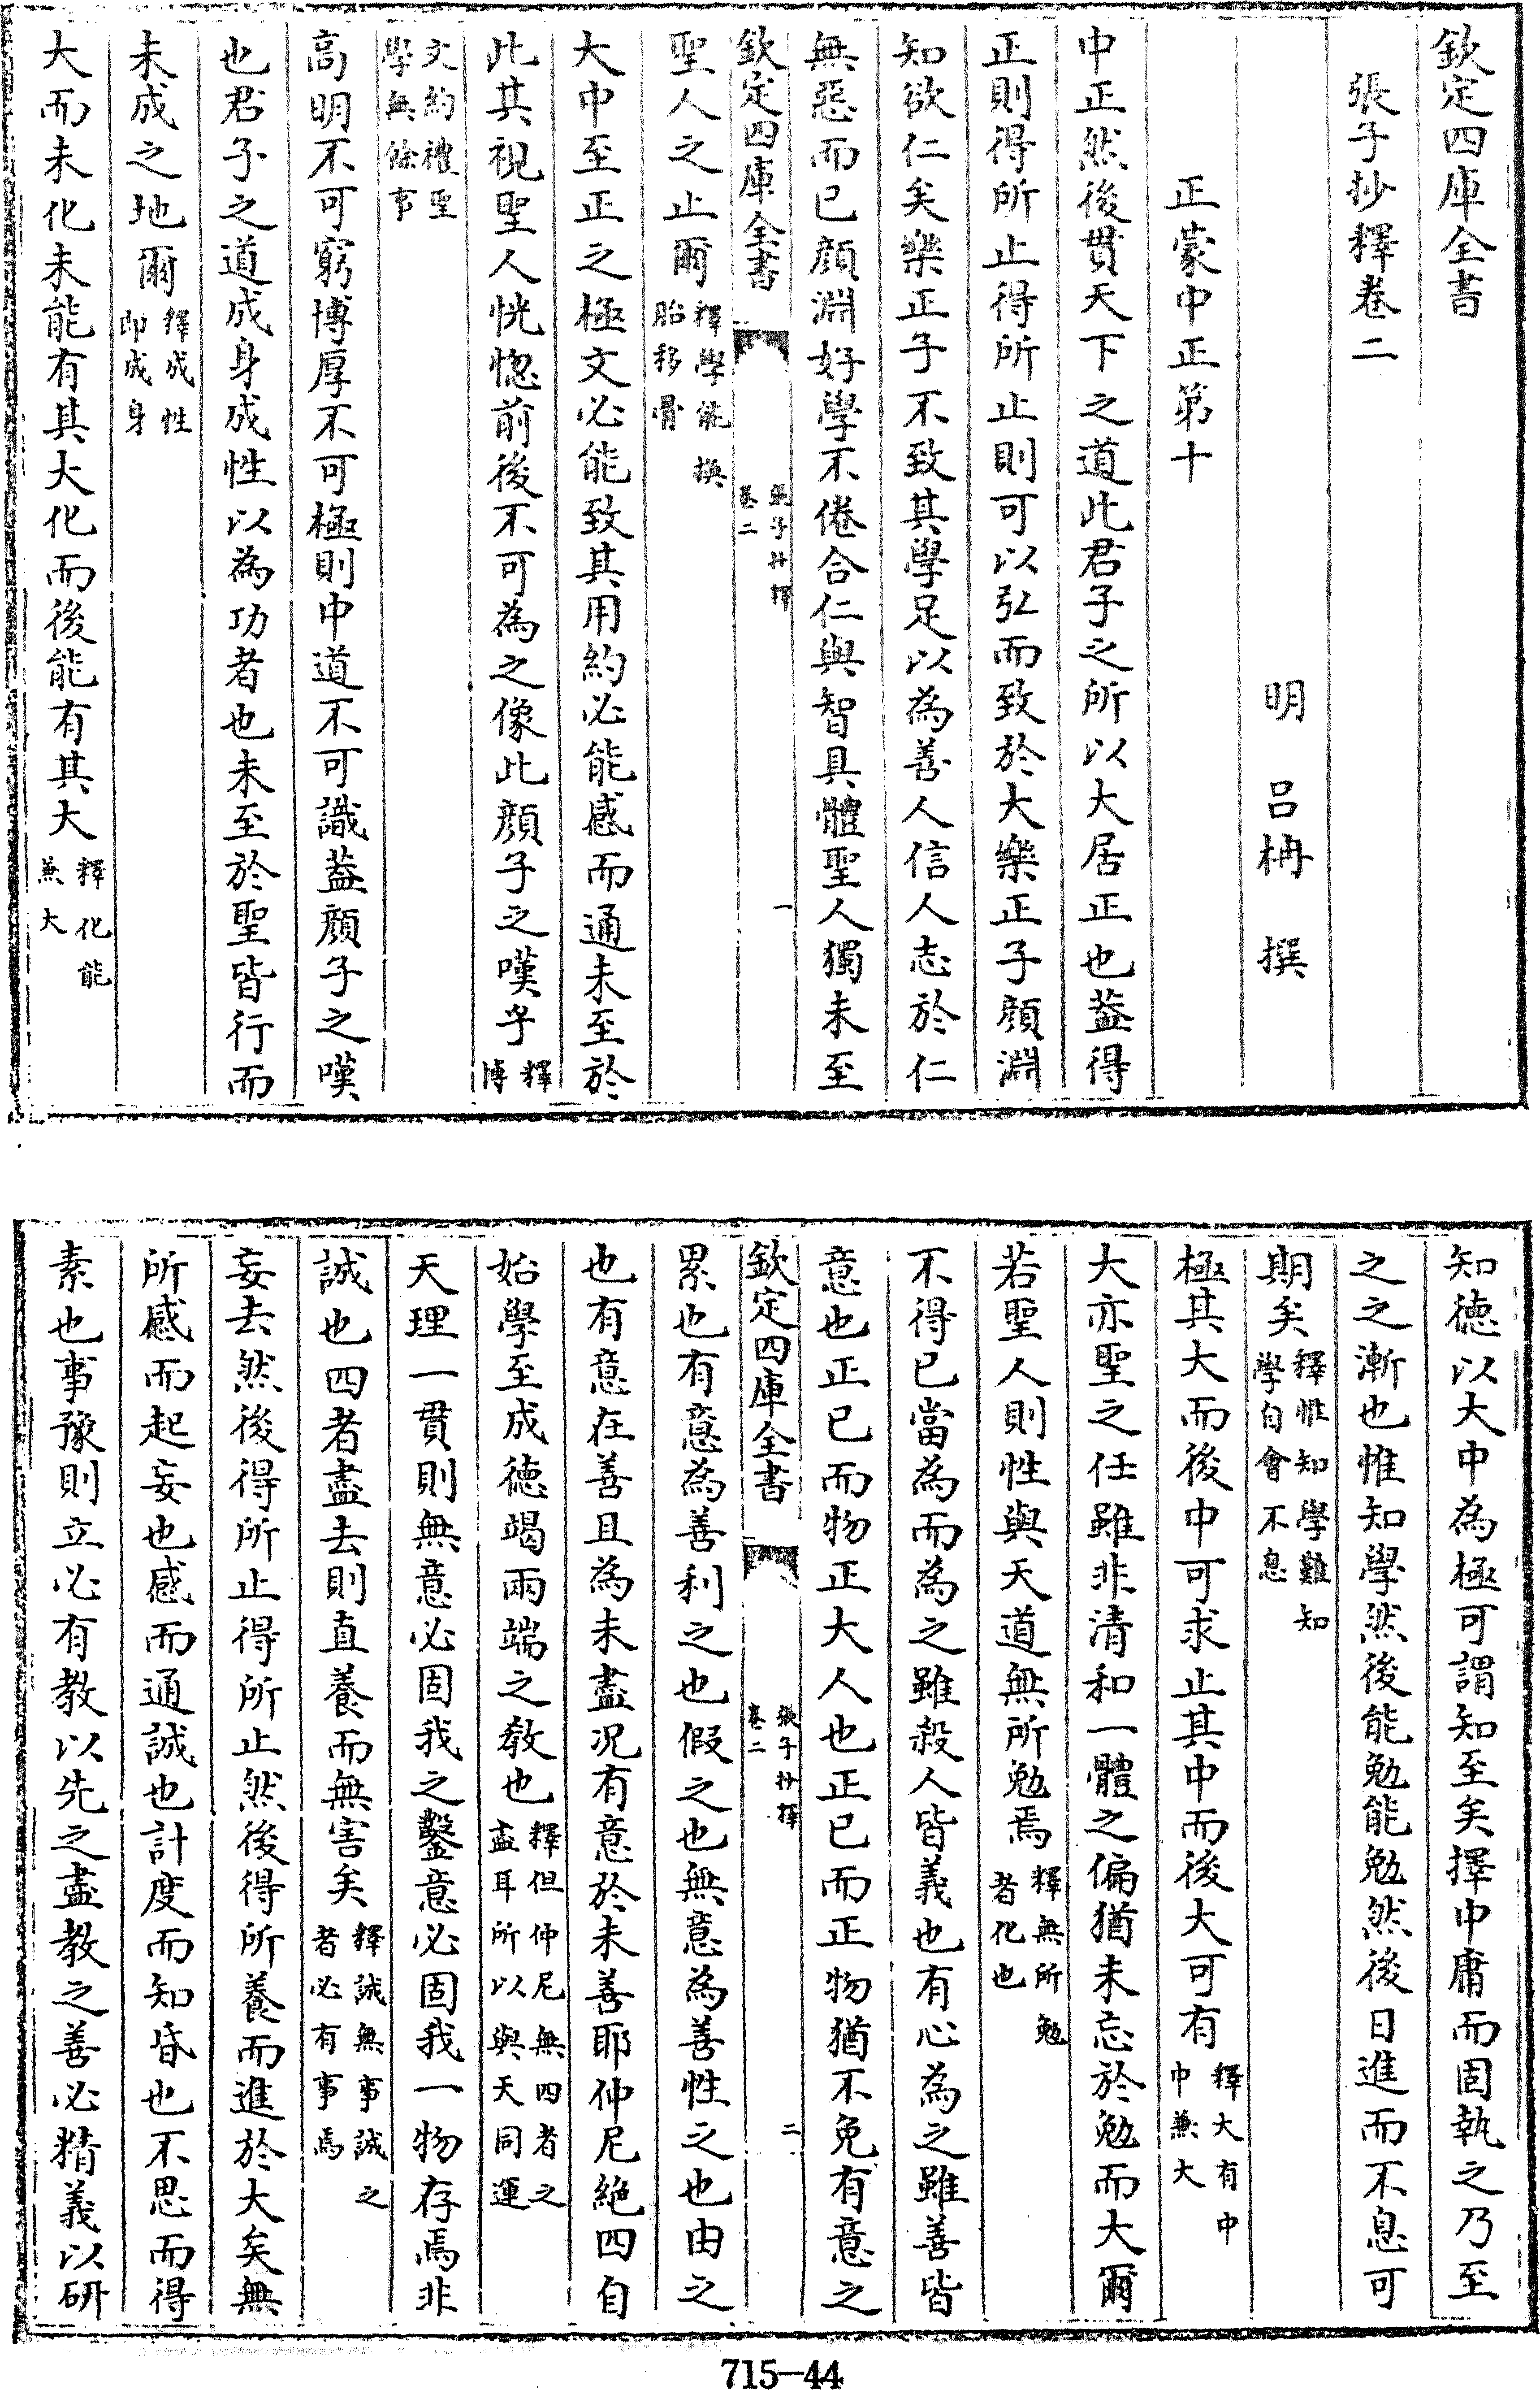 欽定四庫全書
張子抄釋卷二
明 呂柟 撰
正蒙中正第十
中正然後貫天下之道此君子之所以大居正也葢得
正則得所止得所止則可以弘而致於大樂正子顔淵
知欲仁矣樂正子不致其學足以為善人信人志於仁
無惡而已顔淵好學不倦合仁與智具體聖人獨未至
欽定四庫全書
張子抄釋
卷二
一
聖人之止爾釋學能換
胎移骨
大中至正之極文必能致其用約必能感而通未至於
此其視聖人恍惚前後不可為之像此顔子之嘆乎釋
博
文約禮聖
學無餘事
高明不可窮博厚不可極則中道不可識葢顔子之嘆
也君子之道成身成性以為功者也未至於聖皆行而
未成之地爾釋成性
即成身
大而未化未能有其大化而後能有其大釋化能
兼大
知德以大中為極可謂知至矣擇中庸而固執之乃至
之之漸也惟知學然後能勉能勉然後日進而不息可
期矣釋惟知學難知
學自會不息
極其大而後中可求止其中而後大可有釋大有中
中兼大
大亦聖之任雖非清和一體之偏猶未忘於勉而大爾
若聖人則性與天道無所勉焉釋無所勉
者化也
不得已當為而為之雖殺人皆義也有心為之雖善皆
意也正已而物正大人也正已而正物猶不免有意之
欽定四庫全書
張子抄釋
卷二
二
累也有意為善利之也假之也無意為善性之也由之
也有意在善且為未盡况有意於未善耶仲尼絶四自
始學至成德竭兩端之教也釋但仲尼無四者之
盡耳所以與天同運
天理一貫則無意必固我之鑿意必固我一物存焉非
誠也四者盡去則直養而無害矣釋誠無事誠之
者必有事焉
妄去然後得所止得所止然後得所養而進於大矣無
所感而起妄也感而通誠也計度而知昏也不思而得
素也事豫則立必有教以先之盡教之善必精義以研
715-44